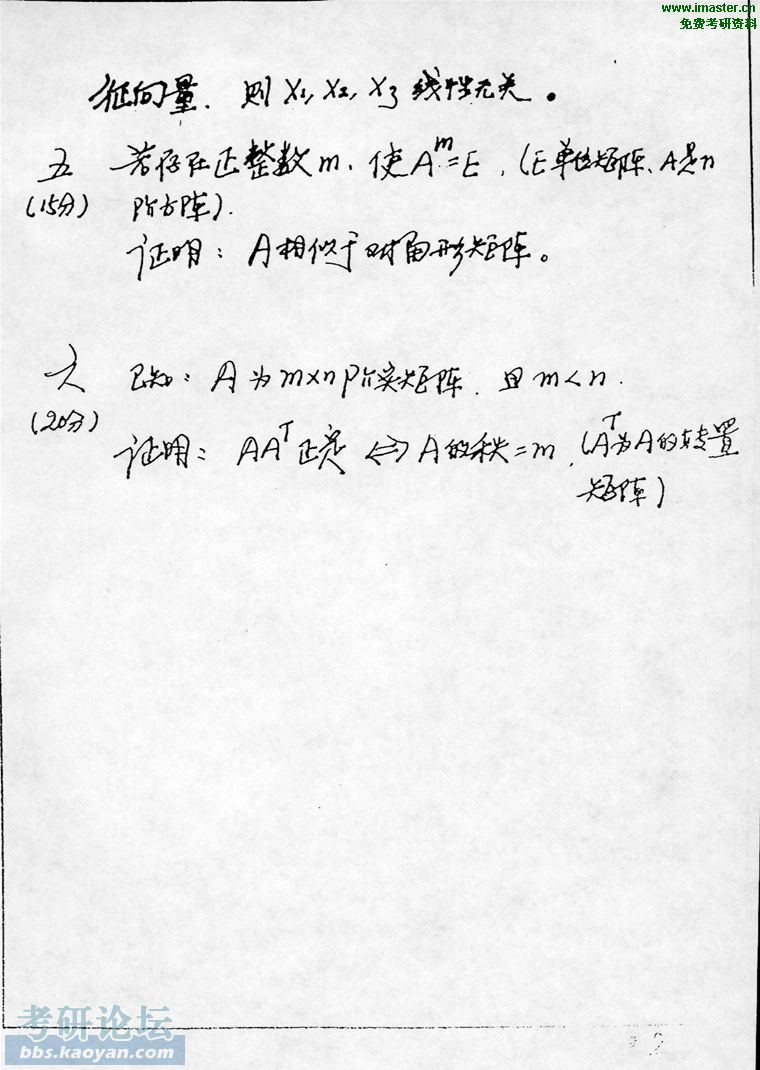 www.imaster.cn
免费考研资料
征向量. 则 X₁, X₂, X₃ 线性无关。
五 若存在正整数m, 使Aᵐ=E, (E单位矩阵、A是n
(15分) 阶方阵).
证明: A相似于对角形矩阵。
六 已知: A为m×n阶实矩阵. 且m<n.
(20分)
证明: AAᵀ正定 ⇔ A的秩=m, (Aᵀ为A的转置
矩阵)
考研论坛
bbs.kaoyan.com